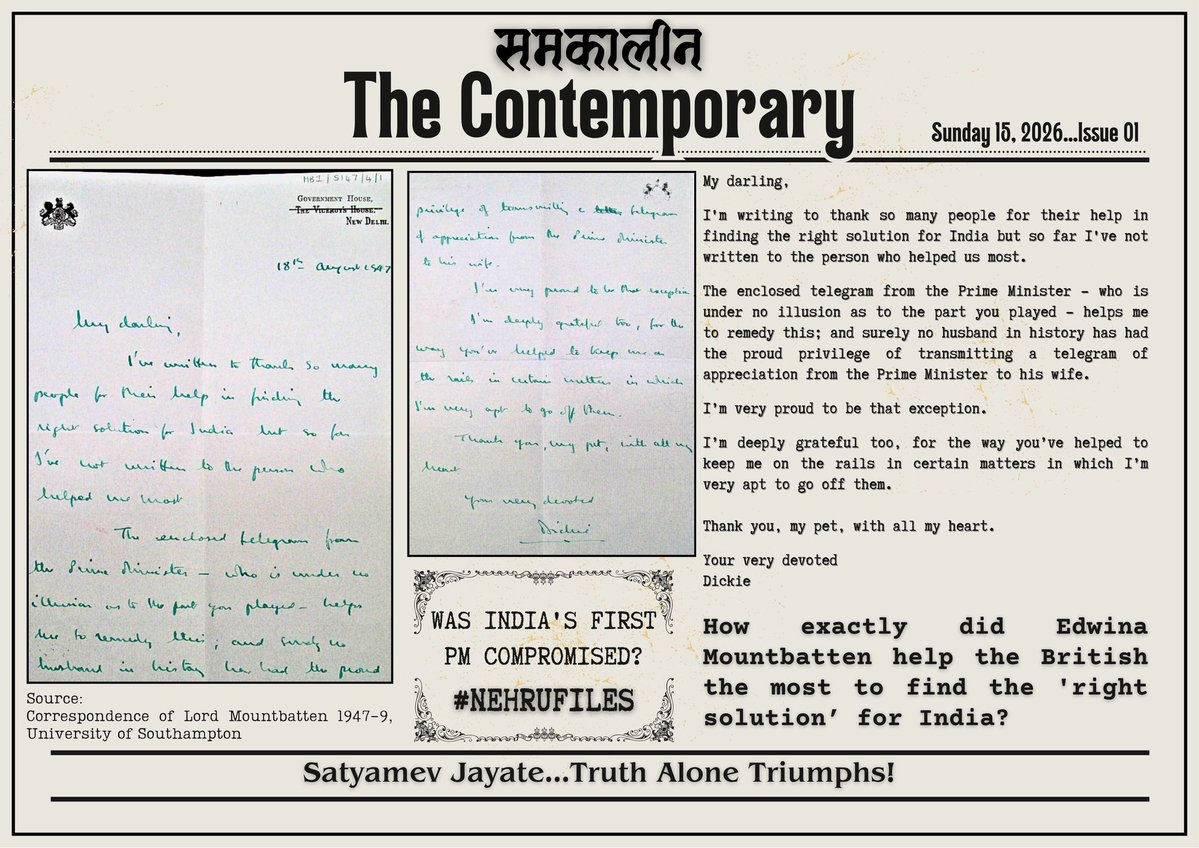 समकालीन
The Contemporary
Sunday 15, 2026...Issue 01
MB1/S147/4/1
GOVERNMENT HOUSE,
THE VICEROY'S HOUSE,
NEW DELHI.
18th August 1947
My darling,
I've written to thank so many
people for their help in finding the
right solution for India but so far
I've not written to the person who
helped us most
The enclosed telegram from
the Prime Minister – who is under no
illusion as to the part you played – helps
me to remedy this; and surely no
husband in history has had the proud
Source:
Correspondence of Lord Mountbatten 1947-9,
University of Southampton
privilege of transmitting a telegram
of appreciation from the Prime Minister
to his wife.
I'm very proud to be that exception
I'm deeply grateful too, for the
way you've helped to keep me on
the rails in certain matters in which
I'm very apt to go off them.
Thank you, my pet, with all my
heart
Your very devoted
Dickie
WAS INDIA'S FIRST
PM COMPROMISED?
#NEHRUFILES
My darling,
I'm writing to thank so many people for their help in
finding the right solution for India but so far I've not
written to the person who helped us most.
The enclosed telegram from the Prime Minister – who is
under no illusion as to the part you played – helps me
to remedy this; and surely no husband in history has had
the proud privilege of transmitting a telegram of
appreciation from the Prime Minister to his wife.
I'm very proud to be that exception.
I'm deeply grateful too, for the way you've helped to
keep me on the rails in certain matters in which I'm
very apt to go off them.
Thank you, my pet, with all my heart.
Your very devoted
Dickie
How exactly did Edwina
Mountbatten help the British
the most to find the 'right
solution' for India?
Satyamev Jayate...Truth Alone Triumphs!